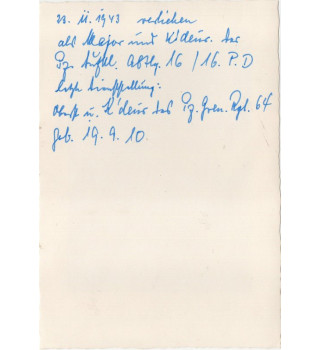 23. II. 1943 verliehen
als Major und K'deur. der
Pz. Aufkl. Abtlg. 16 / 16. P.D
letzte Dienststellung:
Oberst u. K'deur des Pz. Gren. Rgt. 64
geb. 19. 9. 10.